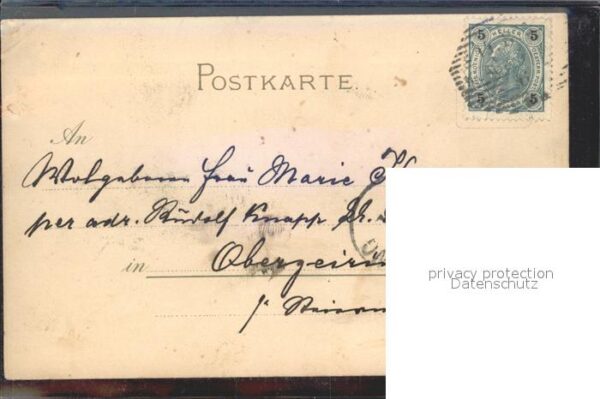 5 HELLER 5
5 5
POSTKARTE
An
Wolgeboren Frau Marie
per adr. Rudolf Knapp
in Obergeir
privacy protection
Datenschutz